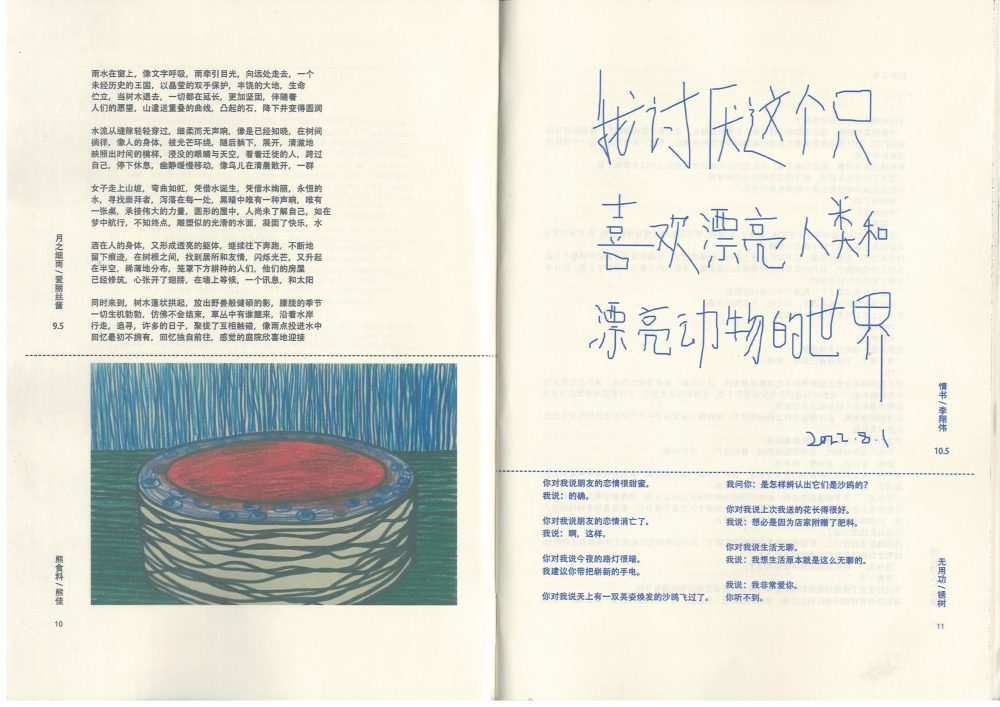 雨水在窗上，像文字呼吸，雨牵引目光，向远处走去，一个
未经历史的王国，以晶莹的双手保护，丰饶的大地，生命
伫立，当树木退去，一切都在延长，更加坚固，伴随着
人们的愿望，山遣送重叠的曲线，凸起的石，降下并变得圆润
水流从缝隙轻轻穿过，细柔而无声响，像是已经知晓，在树间
徜徉，像人的身体，被光芒环绕，随后躺下，展开，清澈地
映照出时间的模样，浸没的眼睛与天空，看着迁徙的人，跨过
自己，停下休息，幽静缓慢移动，像鸟儿在清晨散开，一群
女子走上山坡，弯曲如虹，凭借水诞生，凭借水绚丽，永恒的
水，寻找崇拜者，泻落在每一处，黑暗中唯有一种声响，唯有
一张桌，承接伟大的力量，圆形的屋中，人尚未了解自己，如在
梦中航行，不知终点，雕塑似的光滑的水面，凝固了快乐，水
洒在人的身体，又形成透亮的躯体，继续往下奔跑，不断地
留下痕迹，在树根之间，找到居所和友情，闪烁光芒，又升起
在半空，稀薄地分布，笼罩下方耕种的人们，他们的房屋
已经修筑，心张开了翅膀，在墙上等候，一个讯息，和太阳
同时来到，树木蓬状拱起，放出野兽般健硕的影，朦胧的季节
一切生机勃勃，仿佛不会结束，草丛中有谁醒来，沿着水岸
行走，追寻，许多的日子，聚拢了互相触碰，像雨点投进水中
回忆最初不拥有，回忆独自前往，感觉的庭院欣喜地迎接
月之细雨/爱丽丝酱
9.5
熊食料/熊佳
10
我讨厌这个只
喜欢漂亮人类和
漂亮动物的世界
2022.8.1
情书/李翔伟
10.5
你对我说朋友的恋情很甜蜜。
我说：的确。
你对我说朋友的恋情消亡了。
我说：啊，这样。
你对我说今夜的路灯很暗。
我建议你带把崭新的手电。
你对我说天上有一双英姿焕发的沙鸥飞过了。
我问你：是怎样辨认出它们是沙鸥的？
你对我说上次我送的花长得很好。
我说：想必是因为店家附赠了肥料。
你对我说生活无聊。
我说：我想生活原本就是这么无聊的。
我说：我非常爱你。
你听不到。
无用功/锈树
11